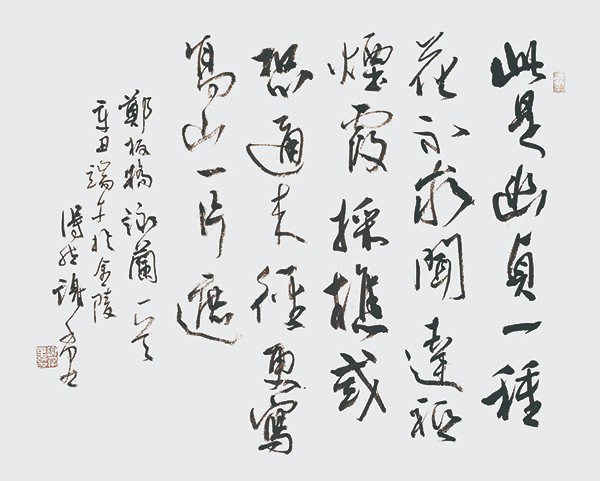 此是幽貞一種
花不求聞達祗
煙霞採樵或
恐通來徑更寫
高山一片遮
鄭板橋詠蘭一首
辛丑端午於金陵
謝